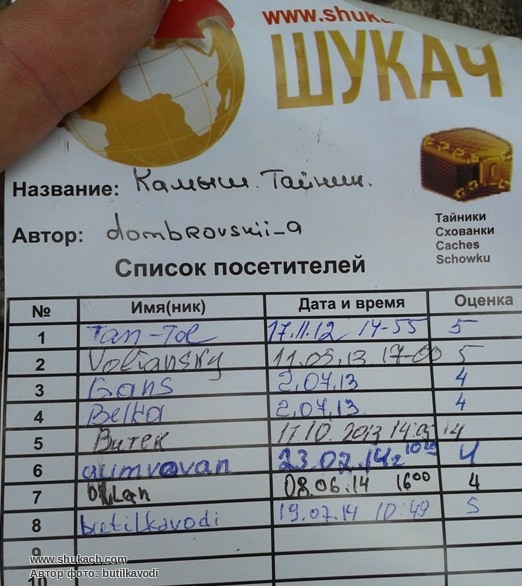 www.shukac
ШУКАЧ
Название: Камыш. Тайник.
Автор: dombrovskii_a
Тайники
Схованки
Caches
Schowku
Список посетителей
№ Имя(ник) Дата и время Оценка
1 Tan-Tol 17.11.12 14-55 5
2 Voliansky 11.05.13 17-00 5
3 Gans 2.07.13 4
4 Belka 2.07.13 4
5 Витек 17.10.2013 4
6 23.02.14г 4
7 08.06.14 16 00 4
8 butilkavodi 19.07.14 10:49 5
9
10
www.shukach.com
Автор фото: butilkavodi